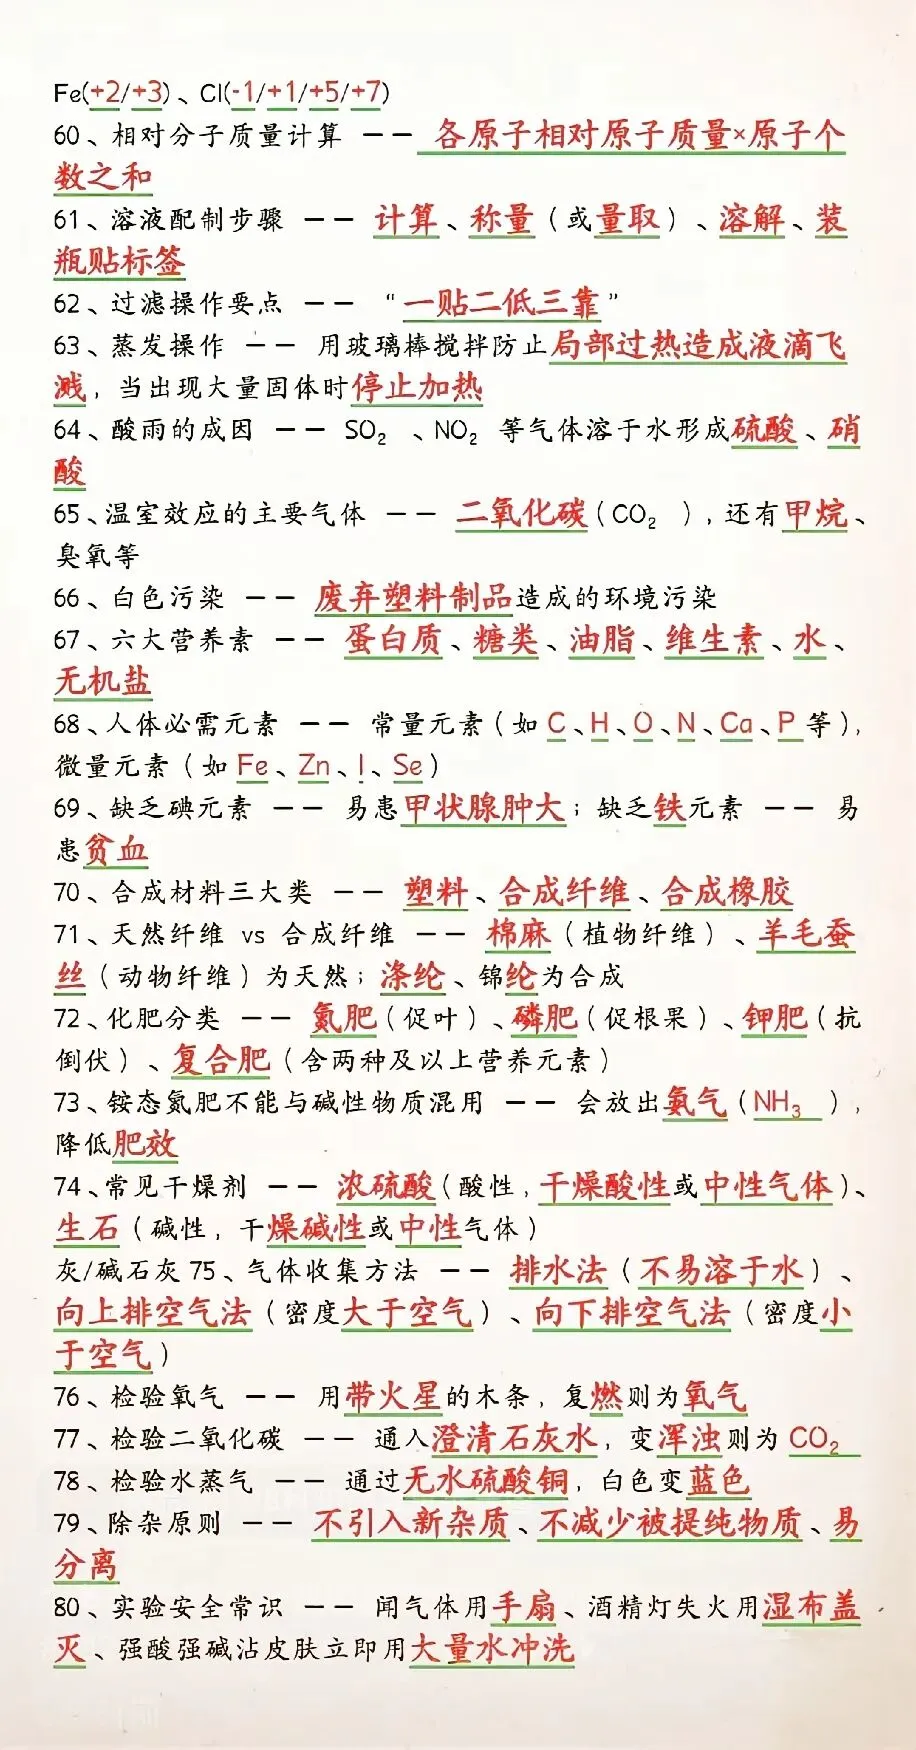 Fe(+2/+3)、Cl(-1/+1/+5/+7)
60、相对分子质量计算 —— 各原子相对原子质量×原子个
数之和
61、溶液配制步骤 —— 计算、称量（或量取）、溶解、装
瓶贴标签
62、过滤操作要点 —— “一贴二低三靠”
63、蒸发操作 —— 用玻璃棒搅拌防止局部过热造成液滴飞
溅，当出现大量固体时停止加热
64、酸雨的成因 —— SO₂ 、NO₂ 等气体溶于水形成硫酸、硝
酸
65、温室效应的主要气体 —— 二氧化碳（CO₂ ），还有甲烷、
臭氧等
66、白色污染 —— 废弃塑料制品造成的环境污染
67、六大营养素 —— 蛋白质、糖类、油脂、维生素、水、
无机盐
68、人体必需元素 —— 常量元素（如 C、H、O、N、Ca、P 等），
微量元素（如 Fe、Zn、I、Se）
69、缺乏碘元素 —— 易患甲状腺肿大；缺乏铁元素 —— 易
患贫血
70、合成材料三大类 —— 塑料、合成纤维、合成橡胶
71、天然纤维 vs 合成纤维 —— 棉麻（植物纤维）、羊毛蚕
丝（动物纤维）为天然；涤纶、锦纶为合成
72、化肥分类 —— 氮肥（促叶）、磷肥（促根果）、钾肥（抗
倒伏）、复合肥（含两种及以上营养元素）
73、铵态氮肥不能与碱性物质混用 —— 会放出氨气（NH₃ ），
降低肥效
74、常见干燥剂 —— 浓硫酸（酸性，干燥酸性或中性气体）、
生石（碱性，干燥碱性或中性气体）
灰/碱石灰 75、气体收集方法 —— 排水法（不易溶于水）、
向上排空气法（密度大于空气）、向下排空气法（密度小
于空气）
76、检验氧气 —— 用带火星的木条，复燃则为氧气
77、检验二氧化碳 —— 通入澄清石灰水，变浑浊则为 CO₂
78、检验水蒸气 —— 通过无水硫酸铜，白色变蓝色
79、除杂原则 —— 不引入新杂质、不减少被提纯物质、易
分离
80、实验安全常识 —— 闻气体用手扇、酒精灯失火用湿布盖
灭、强酸强碱沾皮肤立即用大量水冲洗